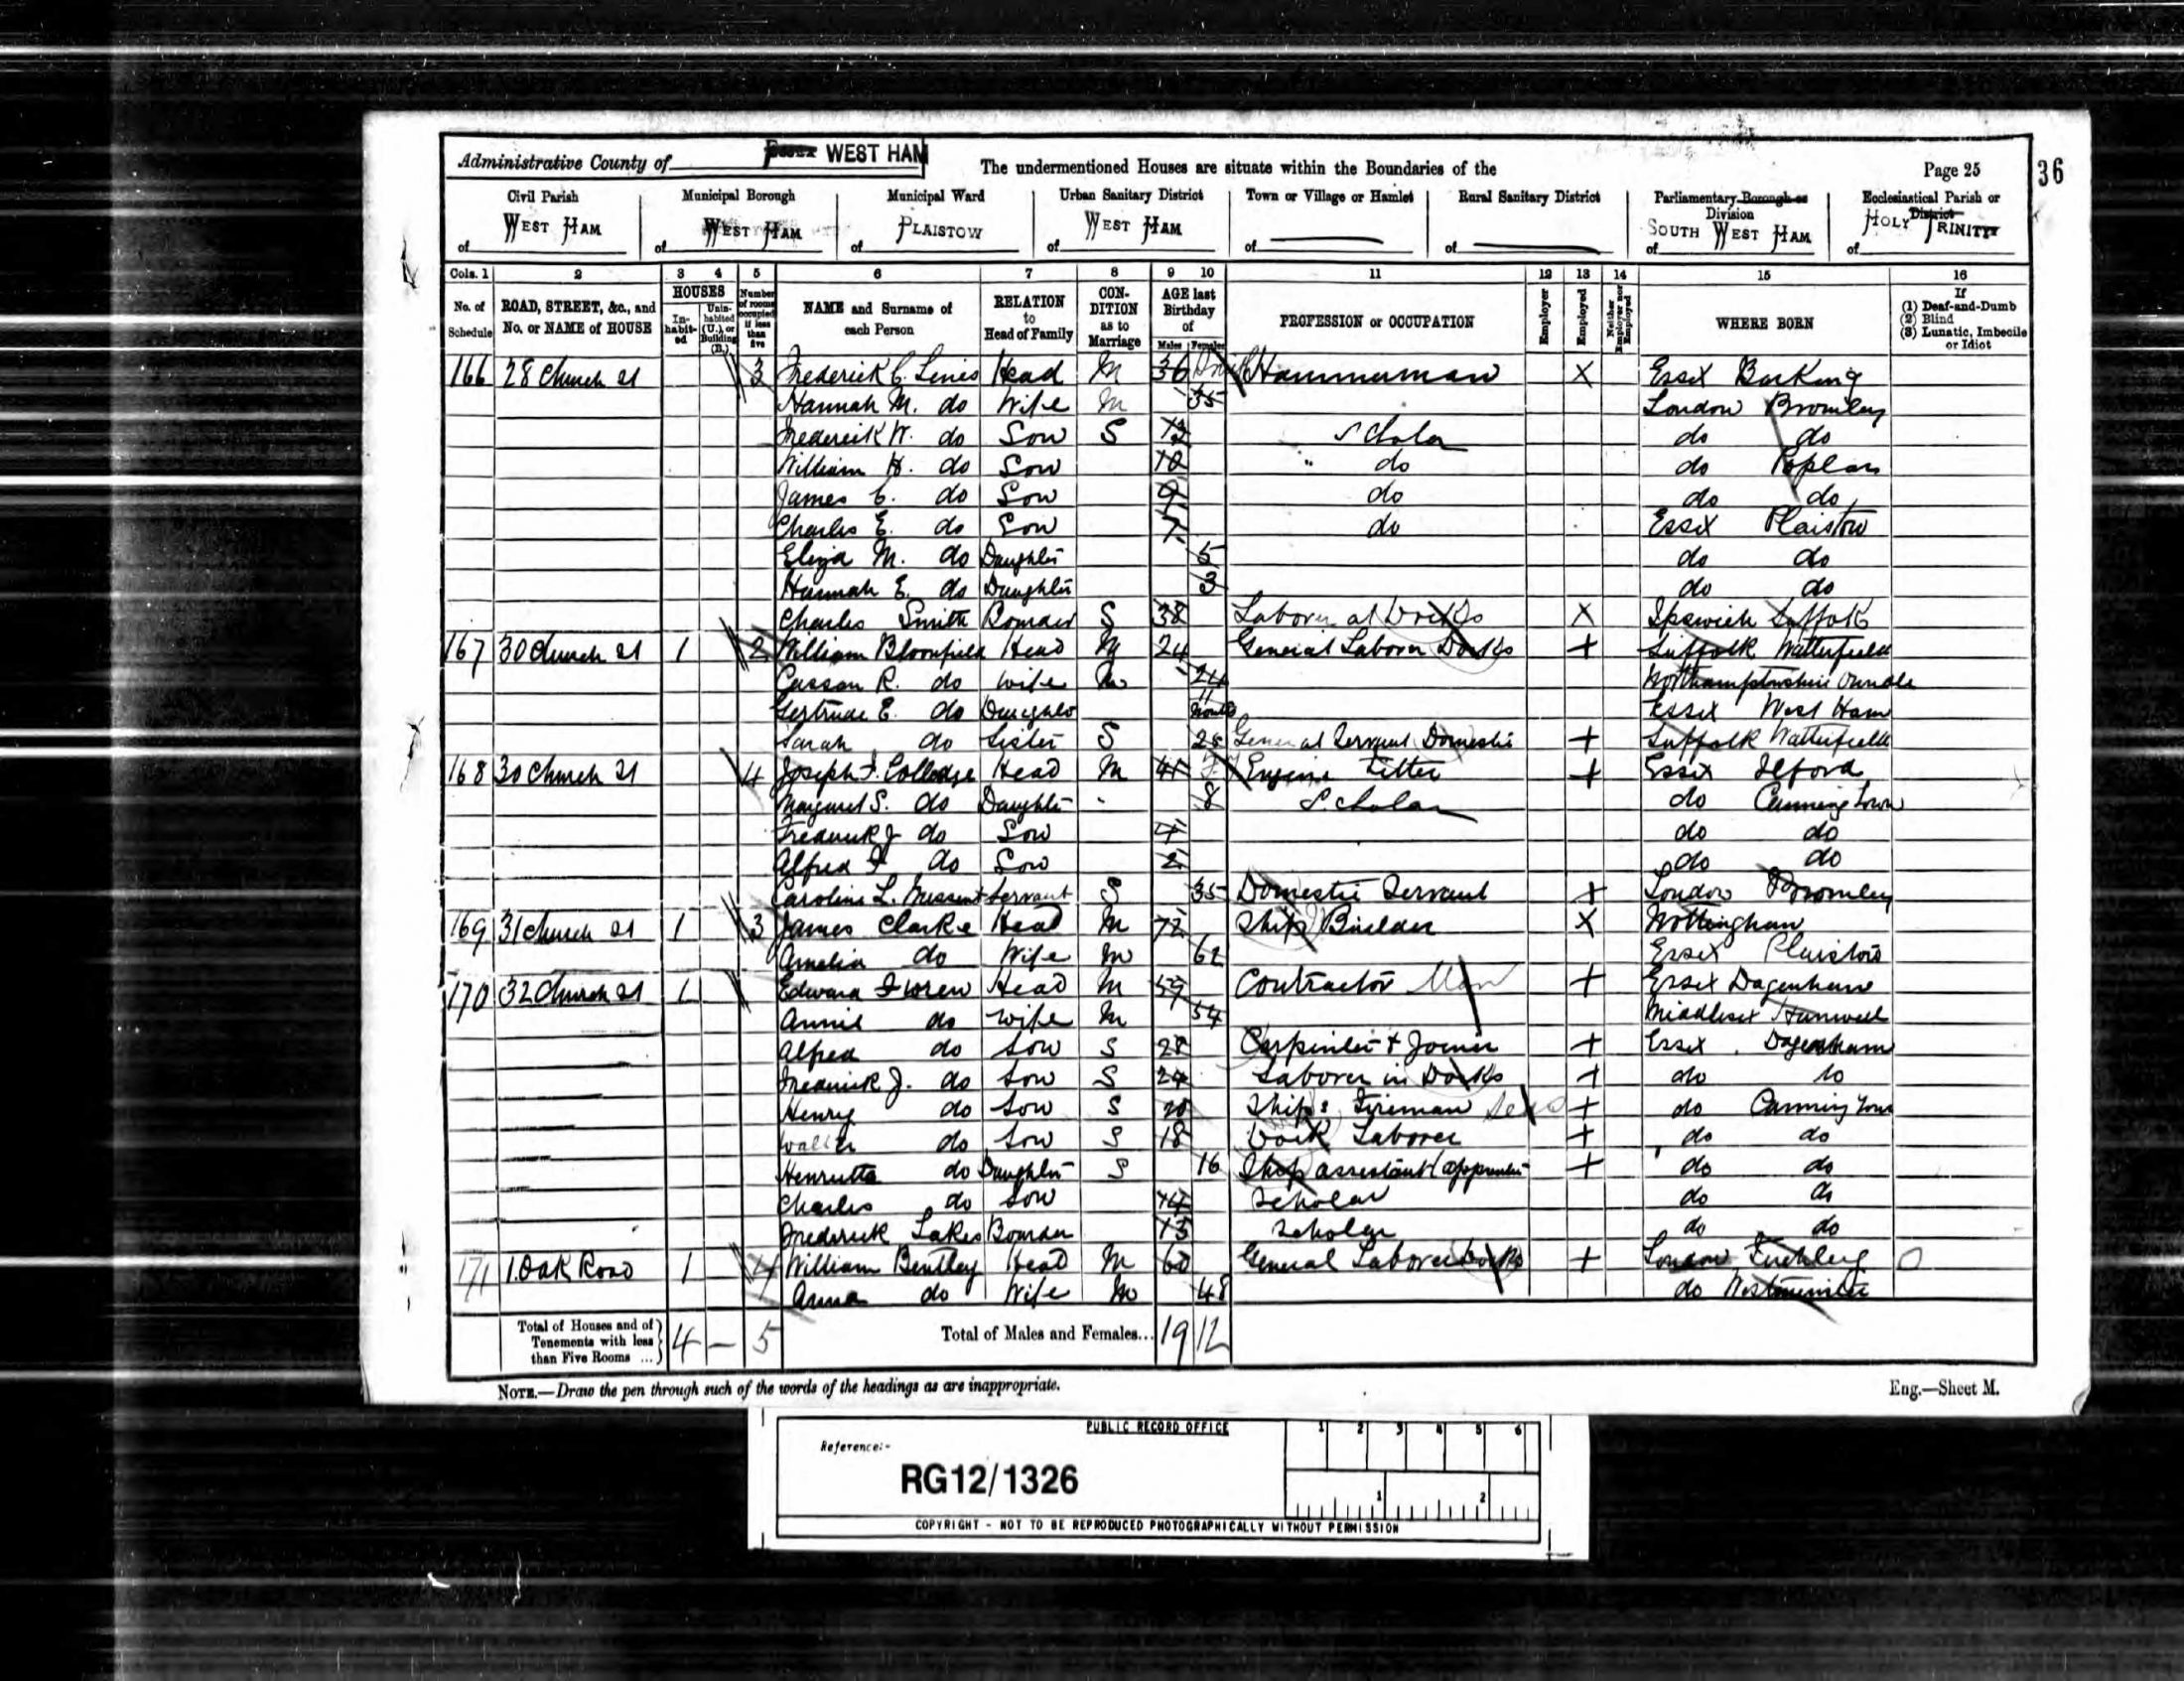 Administrative County of Essex WEST HAM The undermentioned Houses are situate within the Boundaries of the Page 25 36
Civil Parish Municipal Borough Municipal Ward Urban Sanitary District Town or Village or Hamlet Rural Sanitary District Parliamentary Borough or Division Ecclesiastical Parish or District
of WEST HAM of WEST HAM of PLAISTOW of WEST HAM of of of SOUTH WEST HAM of HOLY TRINITY
Cols. 1 2 3 4 5 6 7 8 9 10 11 12 13 14 15 16
No. of Schedule ROAD, STREET, &c., and No. or NAME of HOUSE HOUSES Inhabited Uninhabited (U.), or Building (B.) Number of rooms occupied if less than five NAME and Surname of each Person RELATION to Head of Family CONDITION as to Marriage AGE last Birthday of Males Females PROFESSION or OCCUPATION Employer Employed Neither Employer nor Employed WHERE BORN If (1) Deaf-and-Dumb (2) Blind (3) Lunatic, Imbecile or Idiot
166 28 Church St 3 Frederick C. Lines Head M 36 Hammerman X Essex Barking
Hannah M. do Wife M 35 London Bromley
Frederick W. do Son S Scholar do do
William H. do Son 10 do do Poplar
James C. do Son 9 do do do
Charles E. do Son 7 do Essex Plaistow
Eliza M. do Daughter 5 do do
Hannah E. do Daughter 3 do do
Charles Smith Boarder S 38 Laborer at Docks X Ipswich Suffolk
167 30 Church St 1 2 William Bloomfield Head M 24 General Laborer Docks + Suffolk
R. do Wife M 24 Northamptonshire Oundle
Gertrude E. do Daughter 11 Months Essex West Ham
Sarah do Sister S General Servant Domestic + Suffolk
168 30 Church St 4 Joseph F. Colledge Head M 41 Engine Fitter + Essex Ilford
Margaret S. do Daughter 8 Scholar do Canning Town
Frederick J do Son 4 do do
Alfred F do Son 2 do do
Caroline L. Servant S 35 Domestic Servant + London Bromley
169 31 Church St 1 3 James Clarke Head M 72 Ship Builder X Nottingham
Amelia do Wife M 62 Essex Plaistow
170 32 Church St 1 Edward Head M 59 Contractor Man + Essex Dagenham
Annie do Wife M 54 Middlesex Hanwell
Alfred do Son S 28 Carpenter & Joiner + Essex Dagenham
Frederick J. do Son S 24 Laborer in Docks + do do
Henry do Son S 20 Ships Fireman + do Canning Town
Walter do Son S 18 Dock Laborer + do do
Henrietta do Daughter S 16 Shop assistant + do do
Charles do Son 14 Scholar do do
Frederick Lakes Boarder 13 Scholar do do
171 1 Oak Road 1 4 William Bentley Head M 60 General Laborer Docks + London Finchley
Anna do Wife M 48 do Westminster
Total of Houses and of Tenements with less than Five Rooms ... 4 – 5 Total of Males and Females... 19 12
NOTE.—Draw the pen through such of the words of the headings as are inappropriate. Eng.—Sheet M.
PUBLIC RECORD OFFICE 1 2 3 4 5 6
Reference:-
RG12/1326
1 2
COPYRIGHT - NOT TO BE REPRODUCED PHOTOGRAPHICALLY WITHOUT PERMISSION